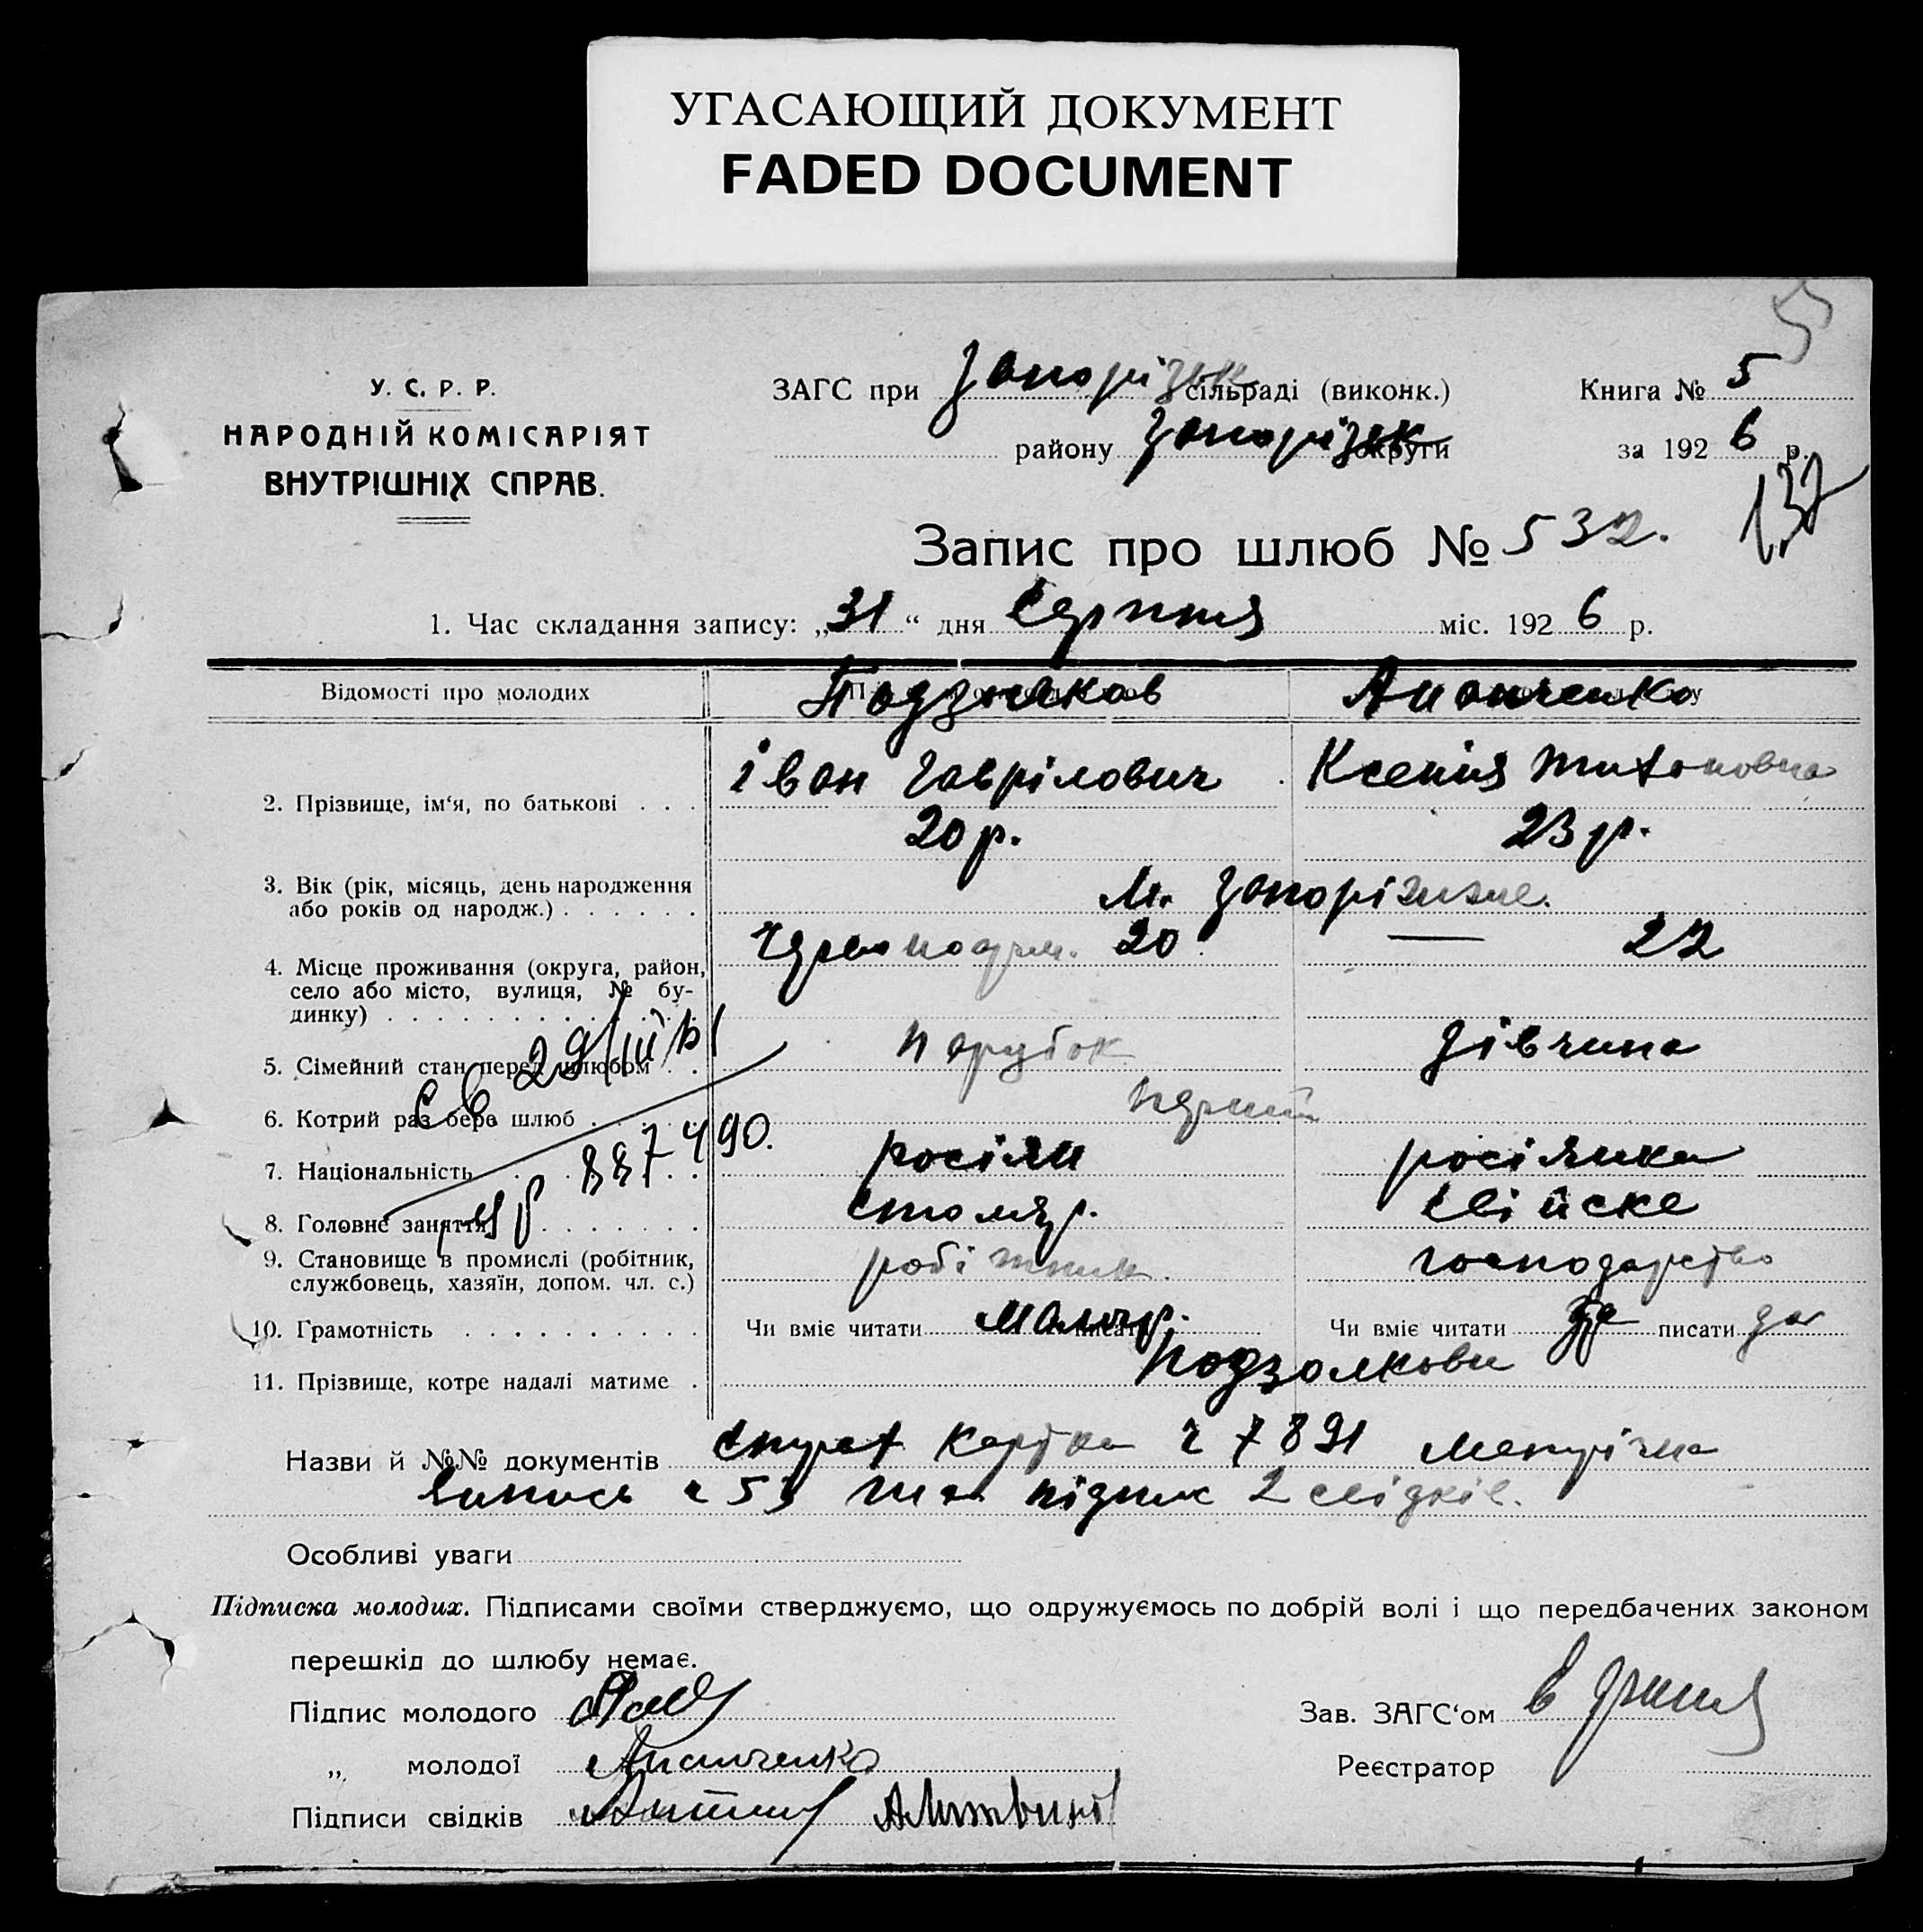 УГАСАЮЩИЙ ДОКУМЕНТ
FADED DOCUMENT
5
У. С. Р. Р.
НАРОДНІЙ КОМІСАРІЯТ
ВНУТРІШНІХ СПРАВ.
ЗАГС при Запорізьк сільраді (виконк.)
району Запорізьк округи
Книга № 5
за 192 6 р.
137
Запис про шлюб № 532.
1. Час складання запису: „31“ дня Серпня міс. 192 6 р.
Відомості про молодих Подзолков
2. Прізвище, ім‘я, по батькові . . . Іван Гаврілович Ксенія
20 р. 23 р.
3. Вік (рік, місяць, день народження
або років од народж.) . . . . . . м. Запоріжжє.
4. Місце проживання (округа, район, 20 — 22
село або місто, вулиця, № бу-
динку) . . . . . . . . . . . .
5. Сімейний стан перед шлюбом . . парубок дівчина
6. Котрий раз бере шлюб . . . . . перший
7. Національність . . . . . . росіян росіянка
887490.
8. Головне заняття . . . . . . . столяр. свійске
9. Становище в промислі (робітник, робітник. господарство
службовець, хазяїн, допом. чл. с.)
10. Грамотність . . . . . . . . . . Чи вміє читати писати Чи вміє читати да писати да
11. Прізвище, котре надалі матиме . Подзолкови
Назви й №№ документів картка ч 7891 Метрічна
та підпис 2 свідків.
Особливі уваги
Підписка молодих. Підписами своїми стверджуємо, що одружуємось по добрій волі і що передбачених законом
перешкід до шлюбу немає.
Підпис молодого
Зав. ЗАГС‘ом
„ молодої
Реєстратор
Підписи свідків АЛитвинов